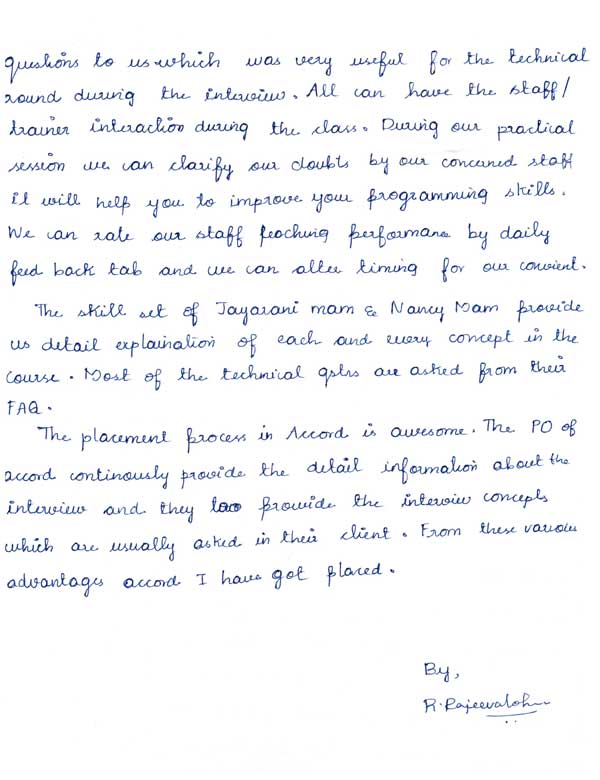 questions to us which was very useful for the technical
round during the interview. All can have the staff/
trainer interaction during the class. During our practical
session we can clarify our doubts by our concerned staff
it will help you to improve your programming skills.
We can rate our staff teaching performane by daily
feed back tab and we can alter timing for our convient.
The skill set of Jayarani mam & Nancy Mam provide
us detail explaination of each and every concept in the
course. Most of the technical qstns are asked from their
FAQ.
The placement process in Accord is awesome. The PO of
accord continously provide the detail information about the
interview and they too provide the interview concepts
which are usually asked in their client. From these various
advantages accord I have got placed.
By,